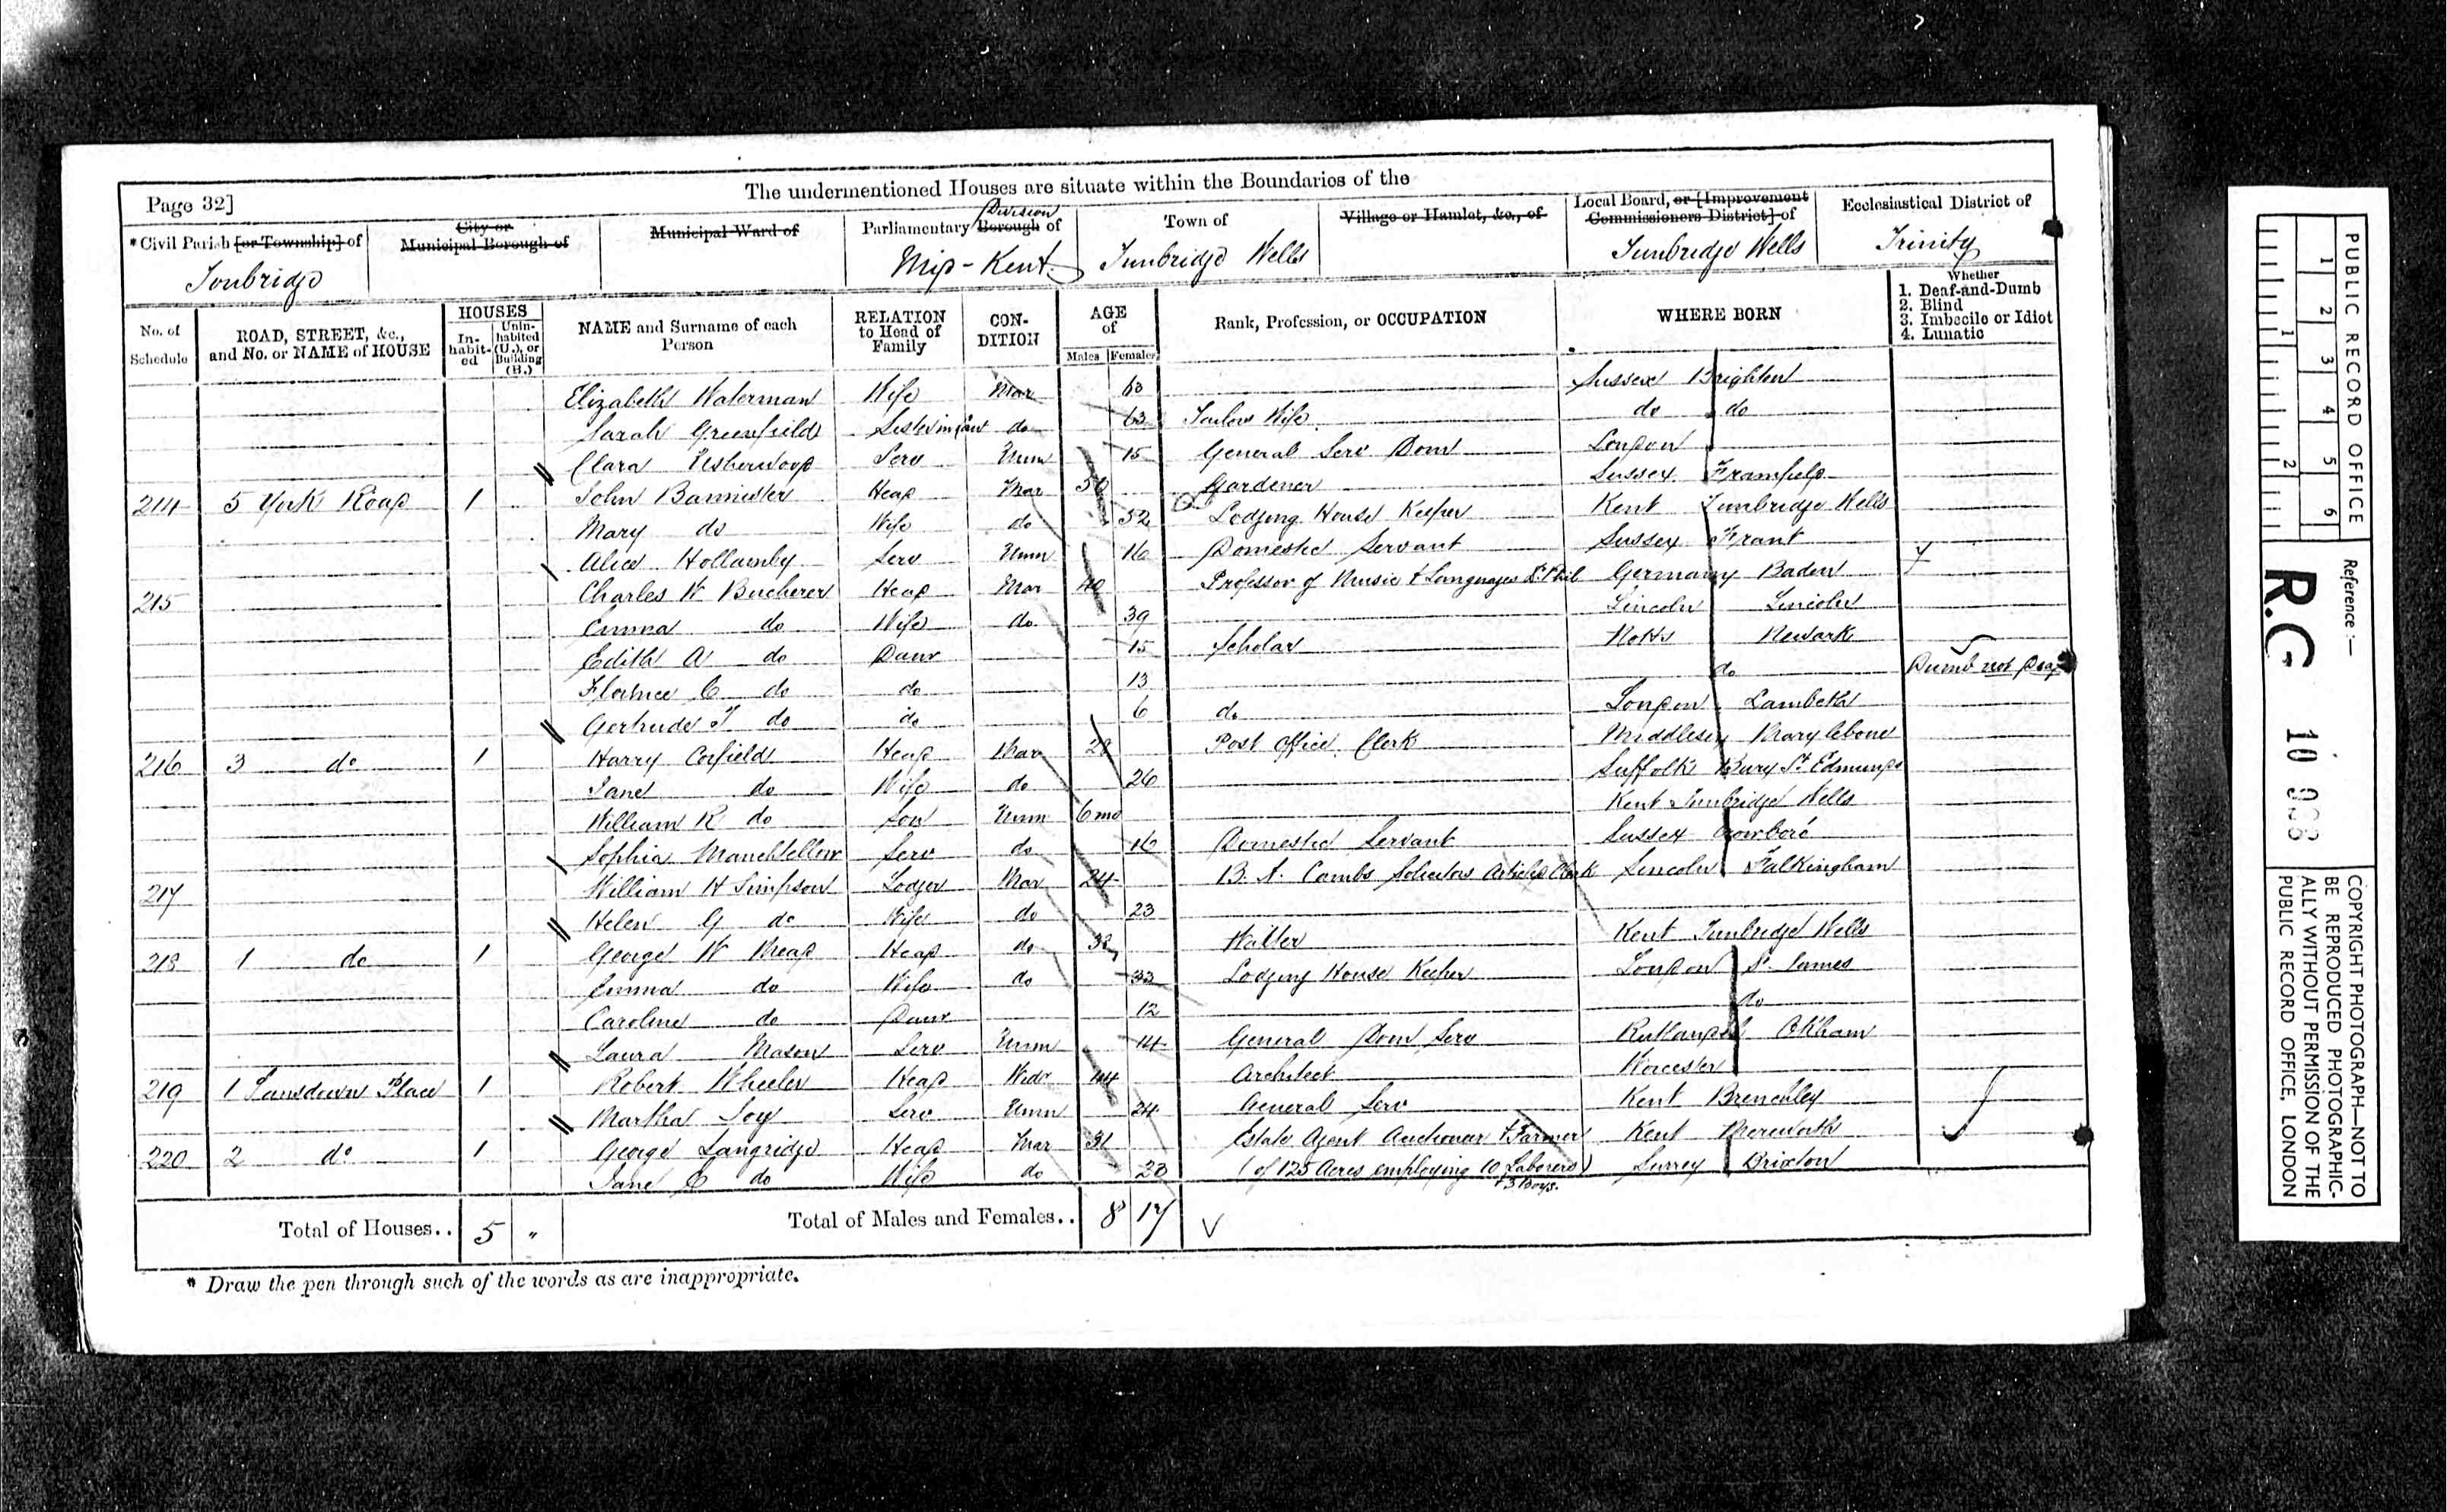 The undermentioned Houses are situate within the Boundaries of the
Page 32]
*Civil Parish [or Township] of
Tonbridge
City or Municipal Borough of
Municipal Ward of
Parliamentary Borough of
Division
Mid-Kent
Town of
Tunbridge Wells
Village or Hamlet, &c., of
Local Board, or [Improvement Commissioners District] of
Tunbridge Wells
Ecclesiastical District of
Trinity
No. of Schedule
ROAD, STREET, &c., and No. or NAME of HOUSE
HOUSES
In-habit-ed
Unin-habited (U.), or Building (B.)
NAME and Surname of each Person
RELATION to Head of Family
CON-DITION
AGE of
Males Females
Rank, Profession, or OCCUPATION
WHERE BORN
Whether
1. Deaf-and-Dumb
2. Blind
3. Imbecile or Idiot
4. Lunatic
Elizabeth Waterman Wife Mar 63 Sussex Brighton
Sarah Greenfield Sister in law do 63 Wife do do
Clara Isherwood Serv Unm 15 General Serv Dom London
214 5 York Road 1 John Bannister Head Mar Gardener Sussex Framfield
Mary do Wife do 52 Lodging House Keeper Kent Tunbridge Wells
Alice Hollamby Serv Unm 16 Domestic Servant Sussex Frant
215 Charles W Bucherer Head Mar 40 Professor of Music & Languages Dr. Phil Germany Baden
Emma do Wife do 39 Lincoln Lincoln
Edith A do Daur 15 Scholar Notts Newark
Florence C do do 13 do Dumb not Deaf
Gertrude T do do 6 do London Lambeth
216 3 do 1 Harry Corfield Head Mar Post Office Clerk Middlesex Marylebone
Jane do Wife do 26 Suffolk Bury St Edmunds
William R do Son Unm 6mo Kent Tunbridge Wells
Sophia Manktellow Serv do 16 Domestic Servant Sussex Crowboro
217 William H Simpson Lodger Mar 24 B.A. Cambs Solicitors Articled Clerk Lincoln Falkingham
Helen G do Wife do 23
218 1 do 1 George W Mead Head do Waiter Kent Tunbridge Wells
Emma do Wife do 33 Lodging House Keeper London St James
Caroline do Daur 12 do
Laura Mason Serv Unm 14 General Dom Serv Rutland Okham
219 1 Lansdown Place 1 Robert Wheeler Head Widr 44 Architect Worcester
Martha Joy Serv Unm 24 General Serv Kent Brenchley
220 2 do 1 George Langridge Head Mar 31 Estate Agent Auctioneer & Farmer Kent Mereworth
Jane C do Wife do 28 (of 125 Acres employing 10 Laborers) Surrey Brixton
+3 Boys.
Total of Houses.. 5 "
Total of Males and Females.. 8 17
* Draw the pen through such of the words as are inappropriate.
PUBLIC RECORD OFFICE
1 2 3 4 5 6
1 2
Reference :-
R.G 10
COPYRIGHT PHOTOGRAPH—NOT TO
BE REPRODUCED PHOTOGRAPHIC-
ALLY WITHOUT PERMISSION OF THE
PUBLIC RECORD OFFICE, LONDON